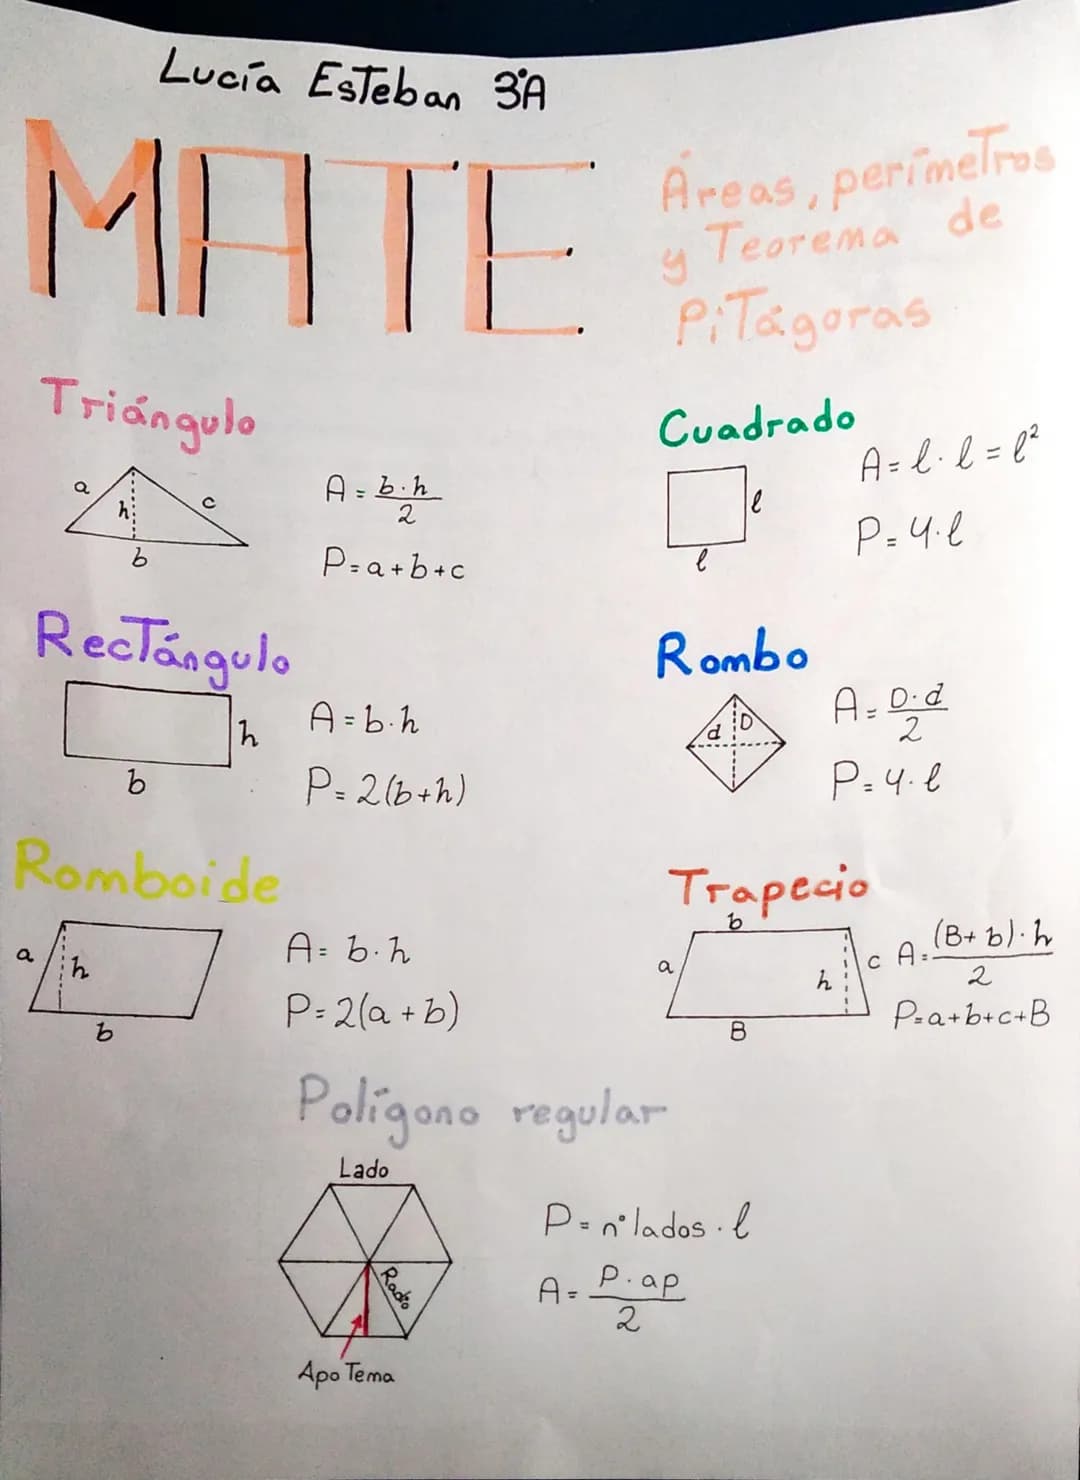 Lucía Esteban 3ºA
MATE
Áreas, perímetros
y Teorema de
Pitágoras
Triángulo
a
h
c
b
A = b·h
2
P=a+b+c
Cuadrado
l
l
A=l·l=l²
P=4·l
Rectángulo
h
b
A=b·h
P=2(b+h)
Rombo
d
D
A=D·d
2
P=4·l
Romboide
a
h
b
A=b·h
P=2(a+b)
Trapecio
b
a
h
c
B
A=(B+b)·h
2
P=a+b+c+B
Polígono regular
Lado
Radio
Apotema
P=nºlados·l
A=P·ap
2